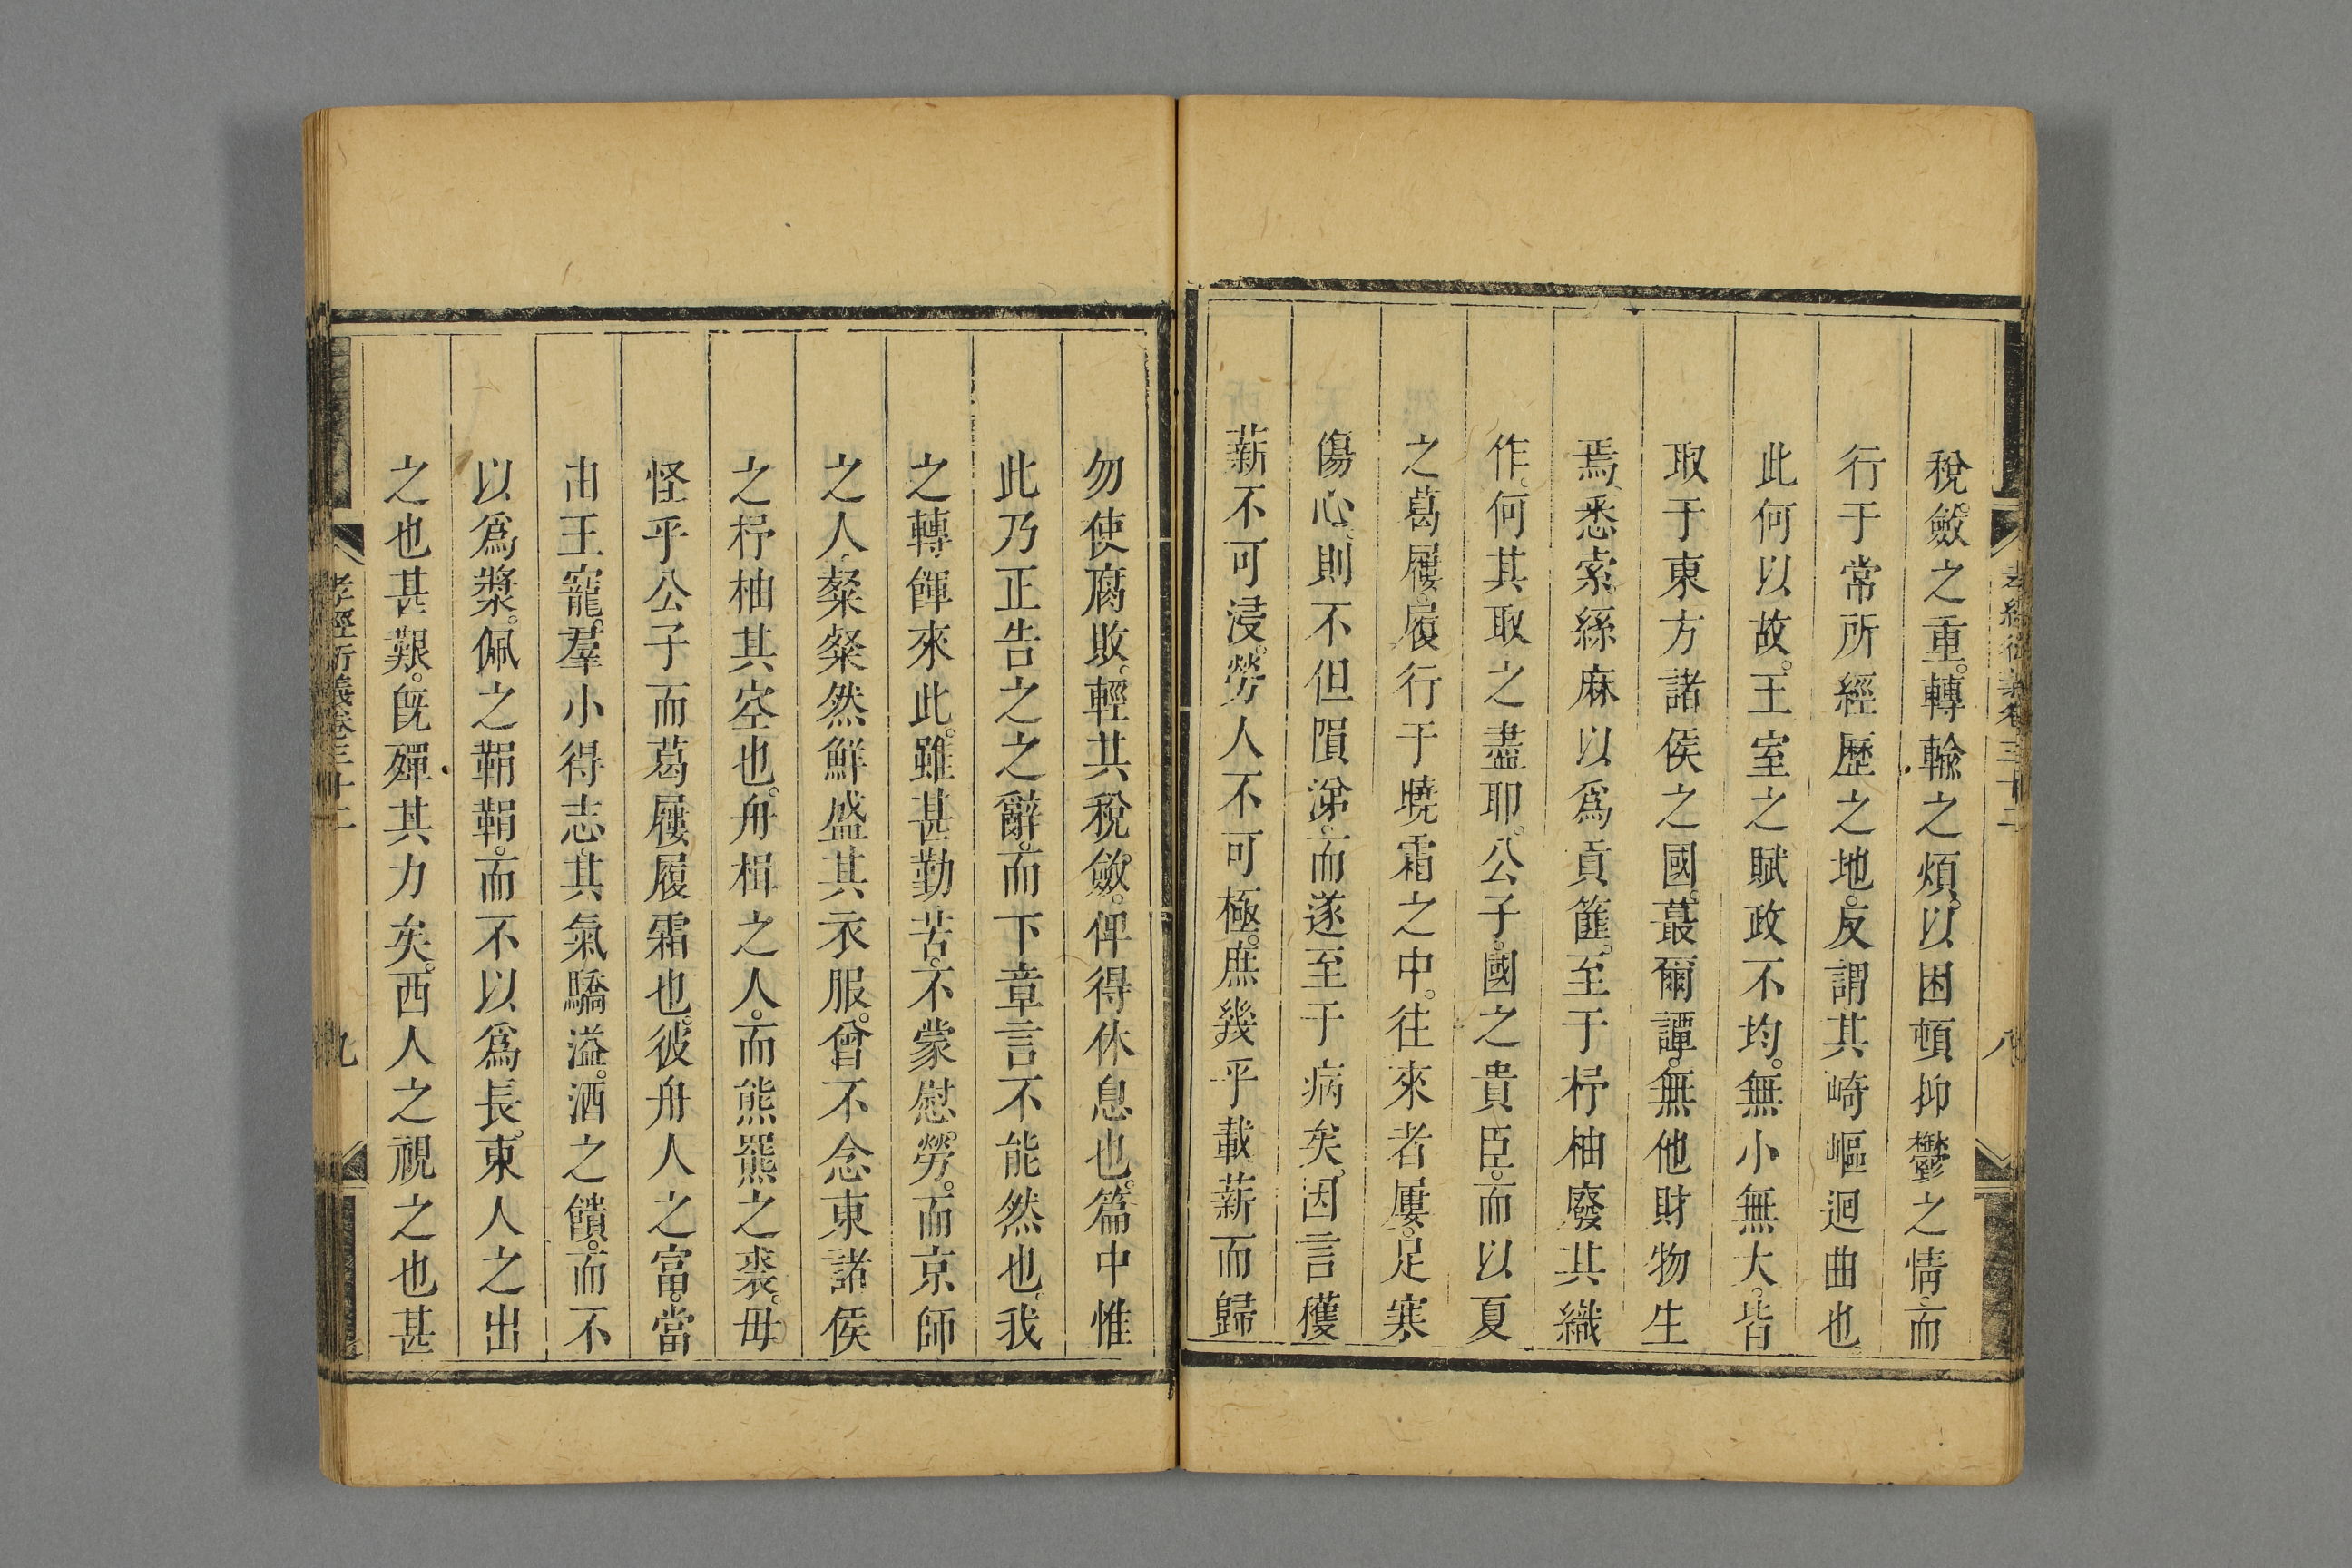 稅斂之重。轉輸之煩。以困頓抑鬱之情。而
行于常所經歷之地。反謂其崎嶇迴曲也
此何以故。王室之賦政不均。無小無大。皆
取于東方諸侯之國。蕞爾譚。無他財物生
焉、悉索絲麻以爲貢篚。至于杼柚廢其織
作。何其取之盡耶。公子。國之貴臣。而以夏
之葛屨。履行于曉霜之中。往來者屢。足寒
傷心。則不但隕涕。而遂至于病矣。因言穫
薪不可浸。勞人不可極。庶幾乎載薪而歸
孝經衍義卷三十二 八
勿使腐敗。輕其稅斂。俾得休息也。篇中惟
此乃正告之之辭。而下章言不能然也。我
之轉餫來此。雖甚勤苦。不蒙慰勞。而京師
之人、粲粲然鮮盛其衣服。曾不念東諸侯
之杼柚其空也。舟楫之人。而熊羆之裘。毋
怪乎公子而葛屨履霜也。彼舟人之富。當
由王寵。羣小得志。其氣驕溢。酒之饋。而不
以爲漿。佩之鞙鞙。而不以爲長。東人之出
之也甚艱。旣殫其力矣。西人之視之也甚
孝經衍義卷三十二 九